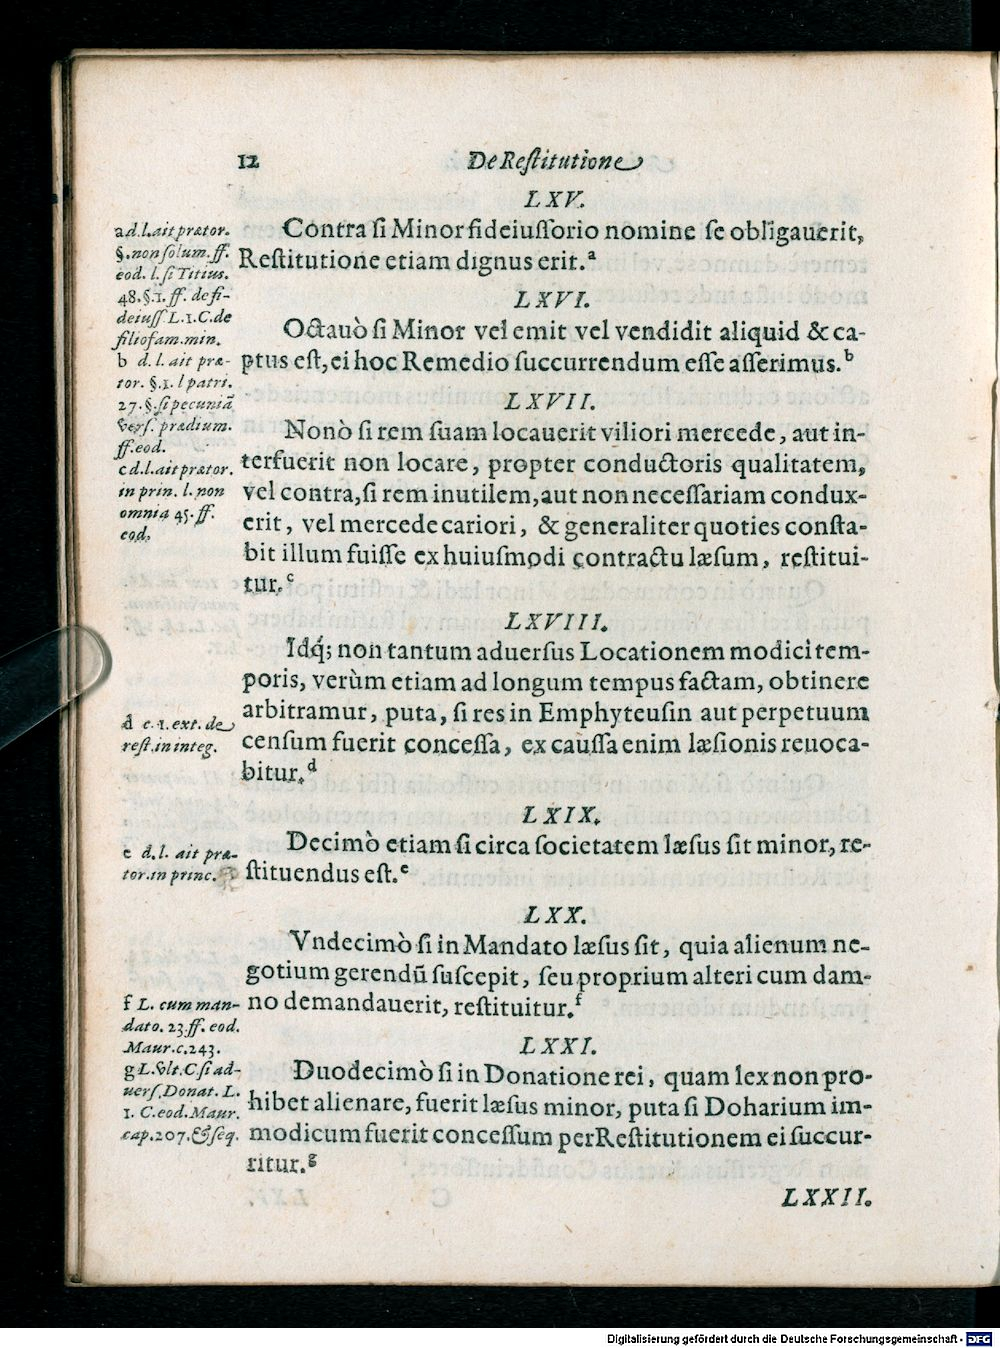 12 De Reſtitutione
LXV.
Contra ſi Minor fideiuſſorio nomine ſe obligauerit,
Reſtitutione etiam dignus erit.ᵃ
LXVI.
Octauò ſi Minor vel emit vel vendidit aliquid & ca-
ptus eſt, ei hoc Remedio ſuccurrendum eſſe aſſerimus.ᵇ
LXVII.
Nonò ſi rem ſuam locauerit viliori mercede, aut in-
terfuerit non locare, propter conductoris qualitatem,
vel contra, ſi rem inutilem, aut non neceſſariam condux-
erit, vel mercede cariori, & generaliter quoties conſta-
bit illum fuiſſe ex huiuſmodi contractu læsum, reſtitui-
tur.ᶜ
LXVIII.
Idq́; non tantum aduerſus Locationem modici tem-
poris, verùm etiam ad longum tempus factam, obtinere
arbitramur, puta, ſi res in Emphyteuſin aut perpetuum
cenſum fuerit conceſſa, ex cauſſa enim læſionis reuoca-
bitur.ᵈ
LXIX.
Decimò etiam ſi circa ſocietatem læſus ſit minor, re-
ſtituendus eſt.ᵉ
LXX.
Vndecimò ſi in Mandato læſus ſit, quia alienum ne-
gotium gerendũ ſuſcepit, ſeu proprium alteri cum dam-
no demandauerit, reſtituitur.ᶠ
LXXI.
Duodecimò ſi in Donatione rei, quam lex non pro-
hibet alienare, fuerit læſus minor, puta ſi Doharium im-
modicum fuerit conceſſum per Reſtitutionem ei ſuccur-
ritur.ᵍ
LXXII.
a d.l. ait prætor.
§. non ſolum. ff.
eod. l. ſi Titius.
48. §. 1. ff. de fi-
deiuſſ. L. 1. C. de
filiofam. min.
b d. l. ait præ-
tor. §. 1. l patri.
27. §. ſi pecuniã
verſ. prædium.
ff. eod.
c d.l. ait prætor.
in prin. l. non
omnia 45. ff.
eod.
d c. 1. ext. de
reſt. in integ.
e d. l. ait præ-
tor. in princ.
f L. cum man-
dato. 23. ff. eod.
Maur. c. 243.
g L. vlt. C. ſi ad-
uerſ. Donat. L.
1. C. eod. Maur.
cap. 207. & ſeq.
Digitalisierung gefördert durch die Deutsche Forschungsgemeinschaft - DFG